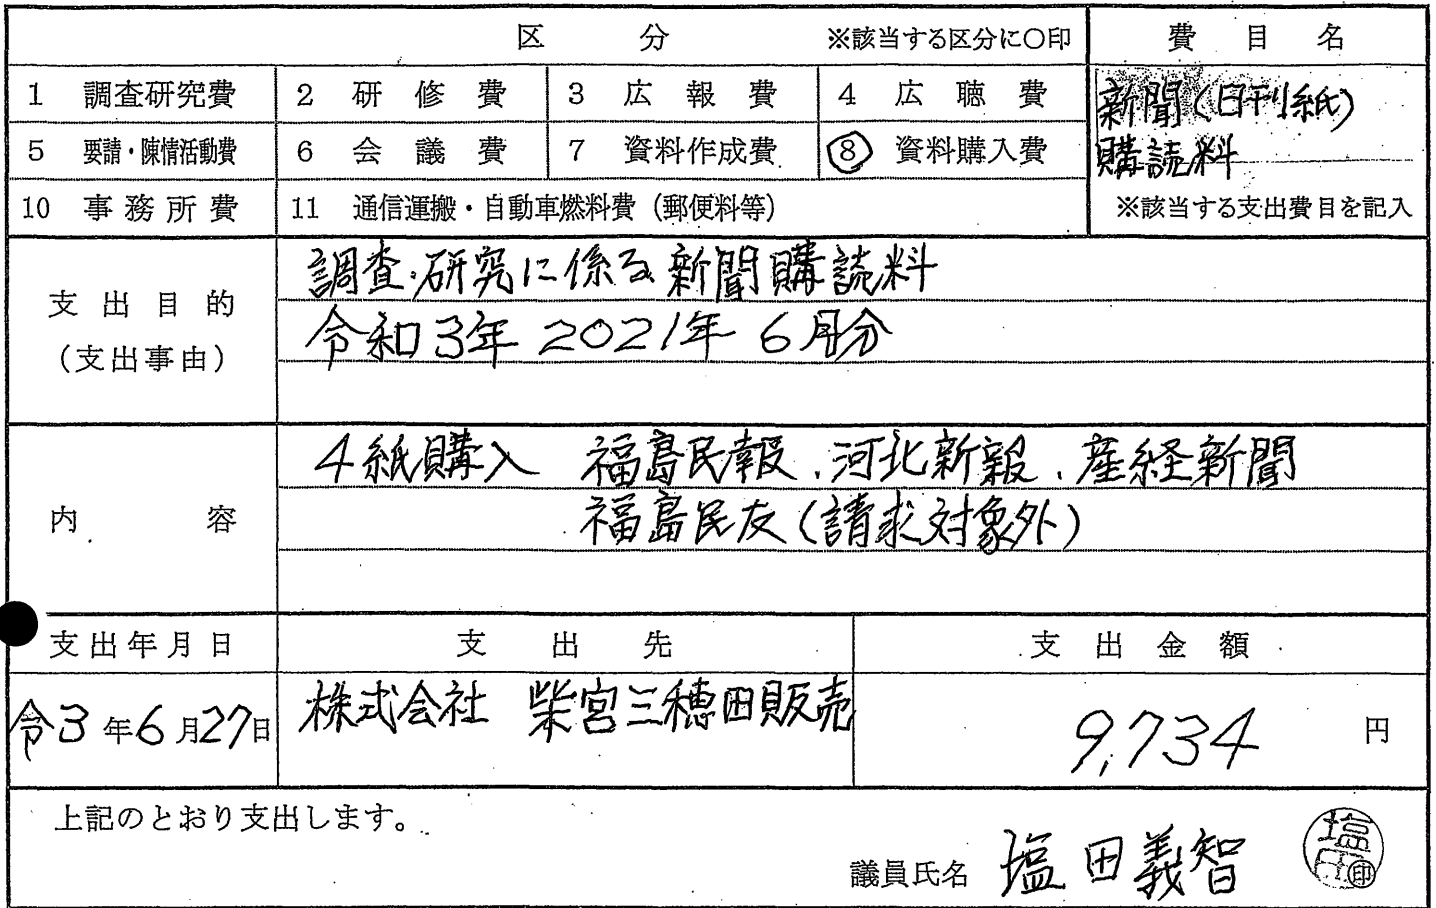 区 分 ※該当する区分に〇印 費 目 名
1 調査研究費 2 研 修 費 3 広 報 費 4 広 聴 費 新聞(日刊紙)
5 要請・陳情活動費 6 会 議 費 7 資料作成費 ⑧ 資料購入費 購読料
10 事 務 所 費 11 通信運搬・自動車燃料費(郵便料等) ※該当する支出費目を記入
支 出 目 的
(支出事由)
調査・研究に係る新聞購読料
令和3年 2021年 6月分
内 容
4紙購入 福島民報、河北新報、産経新聞
福島民友(請求対象外)
支出年月日 支 出 先 支 出 金 額
令3年6月27日 株式会社 柴宮三穂田販売 9,734 円
上記のとおり支出します。
議員氏名 塩田義智 塩田 印